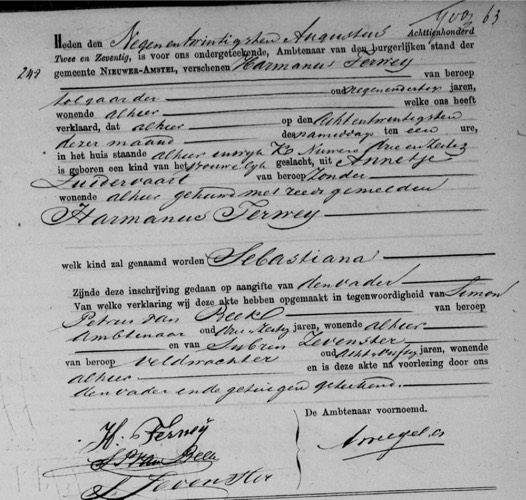 63
Heden den Negenentwintigsten Augustus Achttienhonderd
Twee en Zeventig, is voor ons ondergeteekende, Ambtenaar van den burgerlijken stand der
242 gemeente NIEUWER-AMSTEL, verschenen Harmanus Terwey
van beroep
tolgaarder oud negenendertig jaren,
wonende alhier welke ons heeft
verklaard, dat alhier op den Achtentwintigsten
dezer maand des namiddags ten een ure,
in het huis staande alhier in wijk K Numero Drie en Zestig
is geboren een kind van het vrouwelijk geslacht, uit Annetje
Zuidervaart van beroep Zonder
wonende alhier gehuwd met reeds gemelden
Harmanus Terwey
welk kind zal genaamd worden Sebastiana
Zijnde deze inschrijving gedaan op aangifte van den vader
Van welke verklaring wij deze akte hebben opgemaakt in tegenwoordigheid van Simon
Petrus van Beek van beroep
Ambtenaar oud jaren, wonende alhier
en van Sybren Zevenster
van beroep Veldwachter oud jaren, wonende
alhier en is deze akte na voorlezing door ons
den vader en de getuigen geteekend.
De Ambtenaar voornoemd.
H. Terweij
S P van Beek
S Zevenster